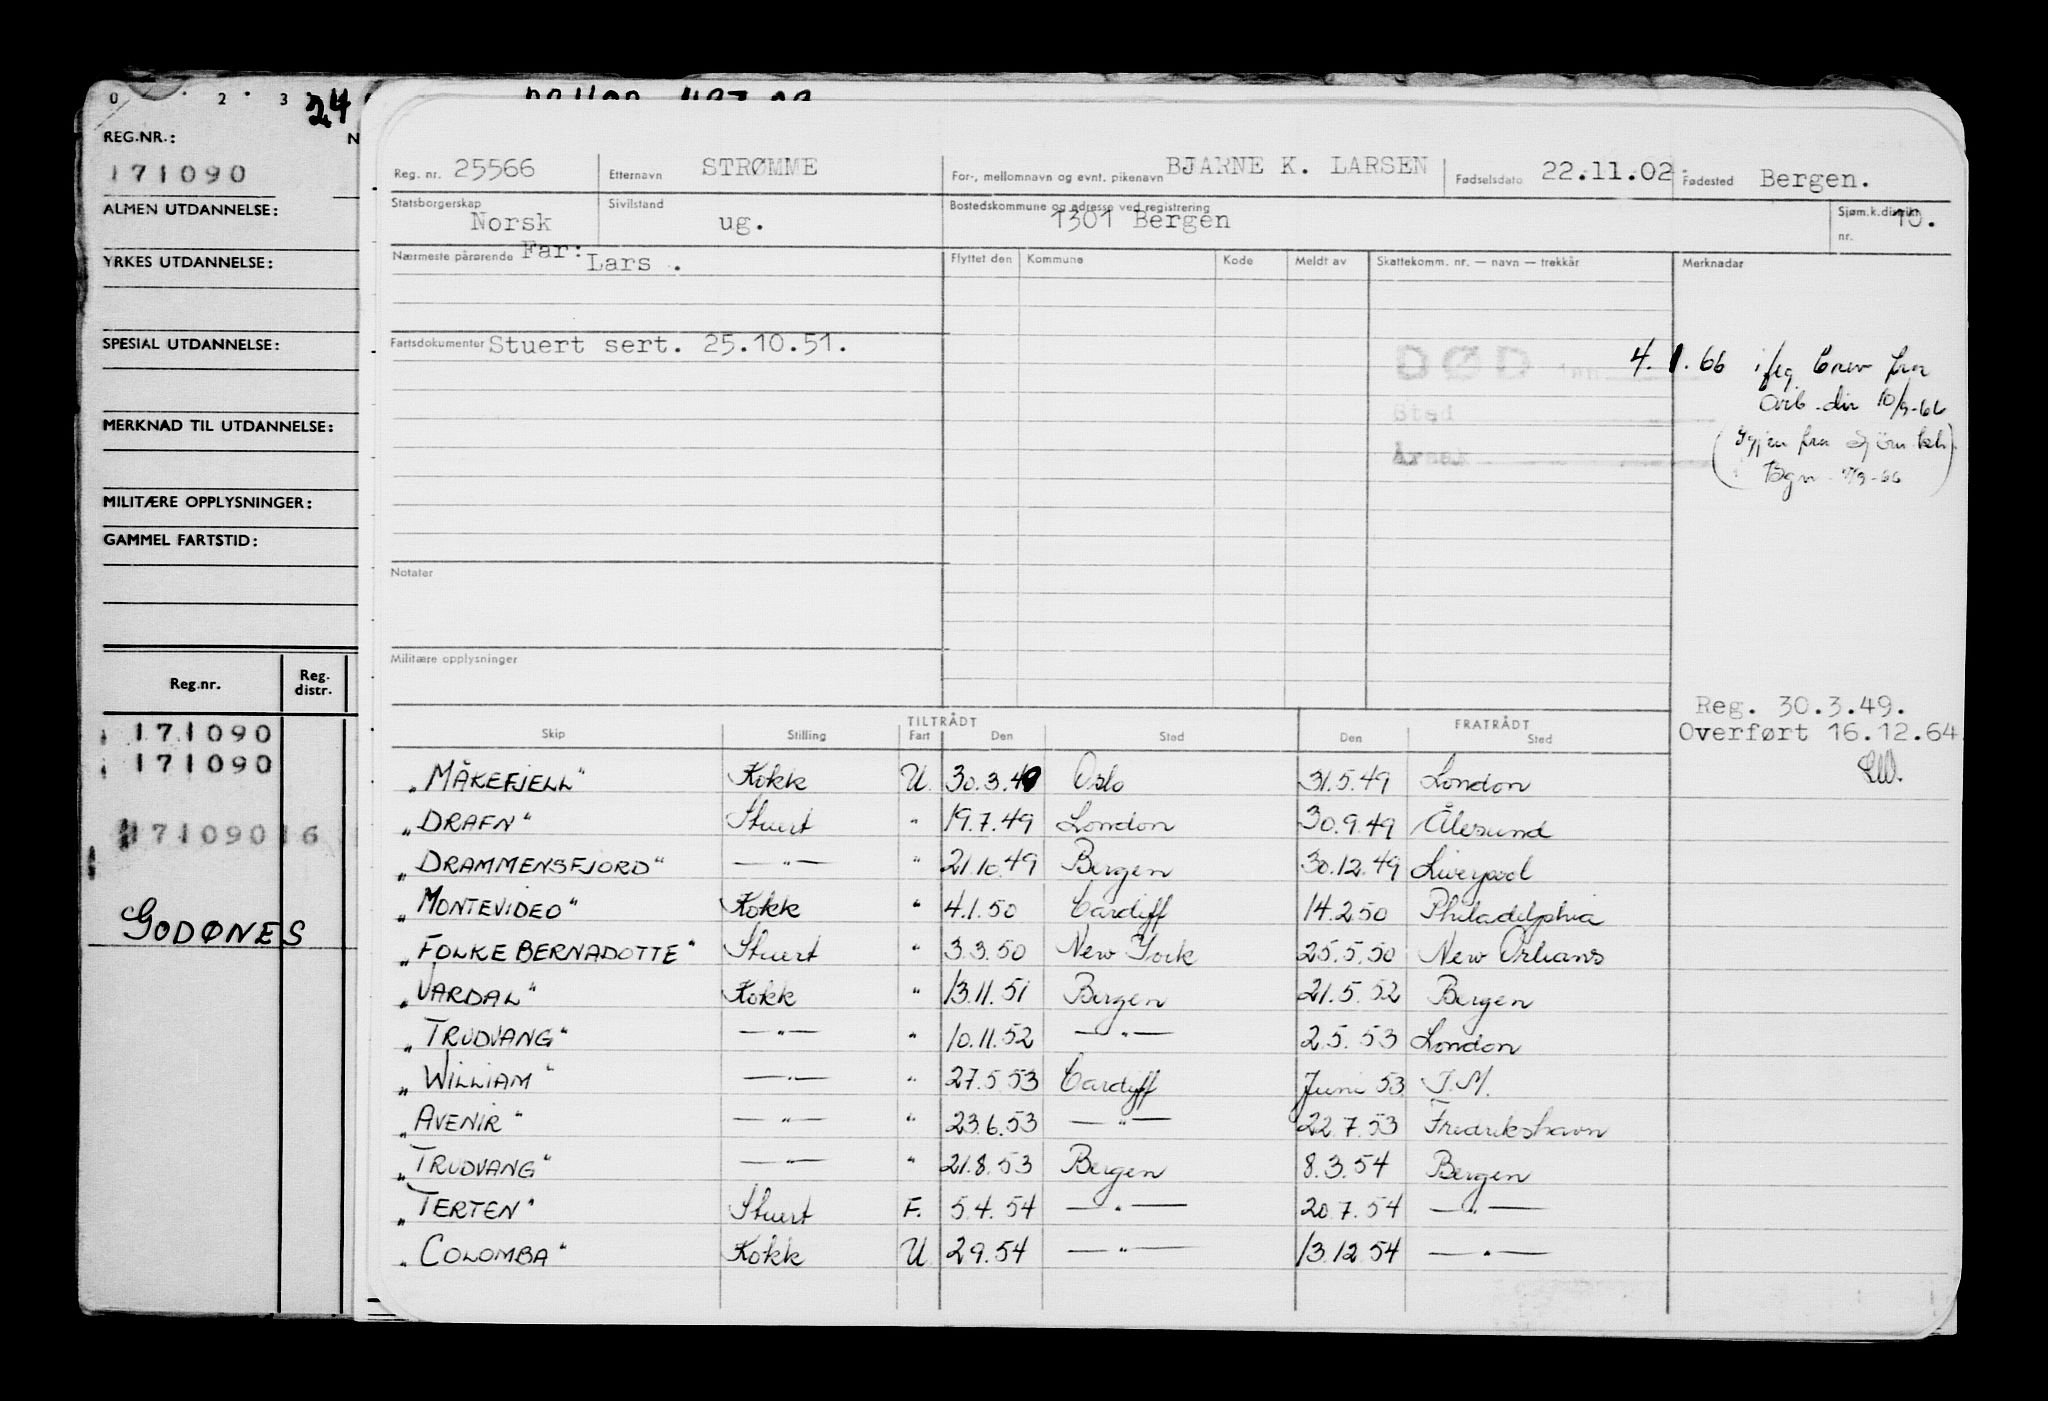 0 2 3
24
REG.NR.:
171090
ALMEN UTDANNELSE:
YRKES UTDANNELSE:
SPESIAL UTDANNELSE:
MERKNAD TIL UTDANNELSE:
MILITÆRE OPPLYSNINGER:
GAMMEL FARTSTID:
Reg.nr. Reg. distr.
171090
171090
171090 16
GODØNES
Reg. nr. 25566 Etternavn STRØMME For-, mellomnavn og evnt. pikenavn BJARNE K. LARSEN Fødselsdato 22.11.02. Fødested Bergen.
Statsborgerskap Norsk Sivilstand ug. Bostedskommune og adresse ved registrering 1301 Bergen Sjøm.k.distrikt nr. 10.
Nærmeste pårørende Far: Lars . Flyttet den Kommune Kode Meldt av Skattekomm. nr. — navn — trekkår Merknader
Fartsdokumenter Stuert sert. 25.10.51.
DØD den 4.1.66 iflg. brev fra
Sted Arb.dir 10/3-66
Årsak (Igjen fra Sjöm.
Bgn -66)
Notater
Militære opplysninger
Reg. 30.3.49.
Overført 16.12.64
TILTRÅDT FRATRÅDT
Skip Stilling Fart Den Sted Den Sted
„MÅKEFJELL" Kokk U 30.3.49 Oslo 31.5.49 London
„DRAFN" Stuert " 19.7.49 London 30.9.49 Ålesund
„DRAMMENSFJORD" —"— " 21.10.49 Bergen 30.12.49 Liverpool
„MONTEVIDEO" Kokk " 4.1.50 Cardiff 14.2.50 Philadelphia
„FOLKE BERNADOTTE" Stuert " 3.3.50 New York 25.5.50 New Orleans
„VARDAL" Kokk " 13.11.51 Bergen 21.5.52 Bergen
„TRUDVANG" —"— " 10.11.52 —"— 2.5.53 London
„WILLIAM" —"— " 27.5.53 Cardiff Juni 53 I.M.
„AVENIR" —"— " 23.6.53 —"— 22.7.53 Fredrikshavn
„TRUDVANG" —"— " 21.8.53 Bergen 8.3.54 Bergen
„TERTEN" Stuert F. 5.4.54 —"— 20.7.54 —"—
„COLOMBA" Kokk U 2.9.54 —"— 13.12.54 —"—